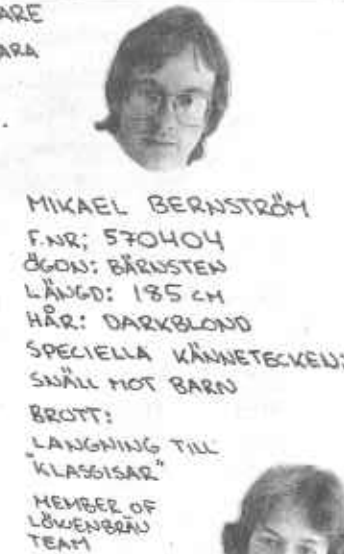 ARE
ARA
MIKAEL BERNSTRÖM
F.NR; 570404
ÖGON: BÄRNSTEN
LÄNGD: 185 CM
HÅR: DARKBLOND
SPECIELLA KÄNNETECKEN:
SNÄLL MOT BARN
BROTT:
LANGNING TILL
"KLASSISAR"
MEMBER OF
LÖWENBRÄU
TEAM